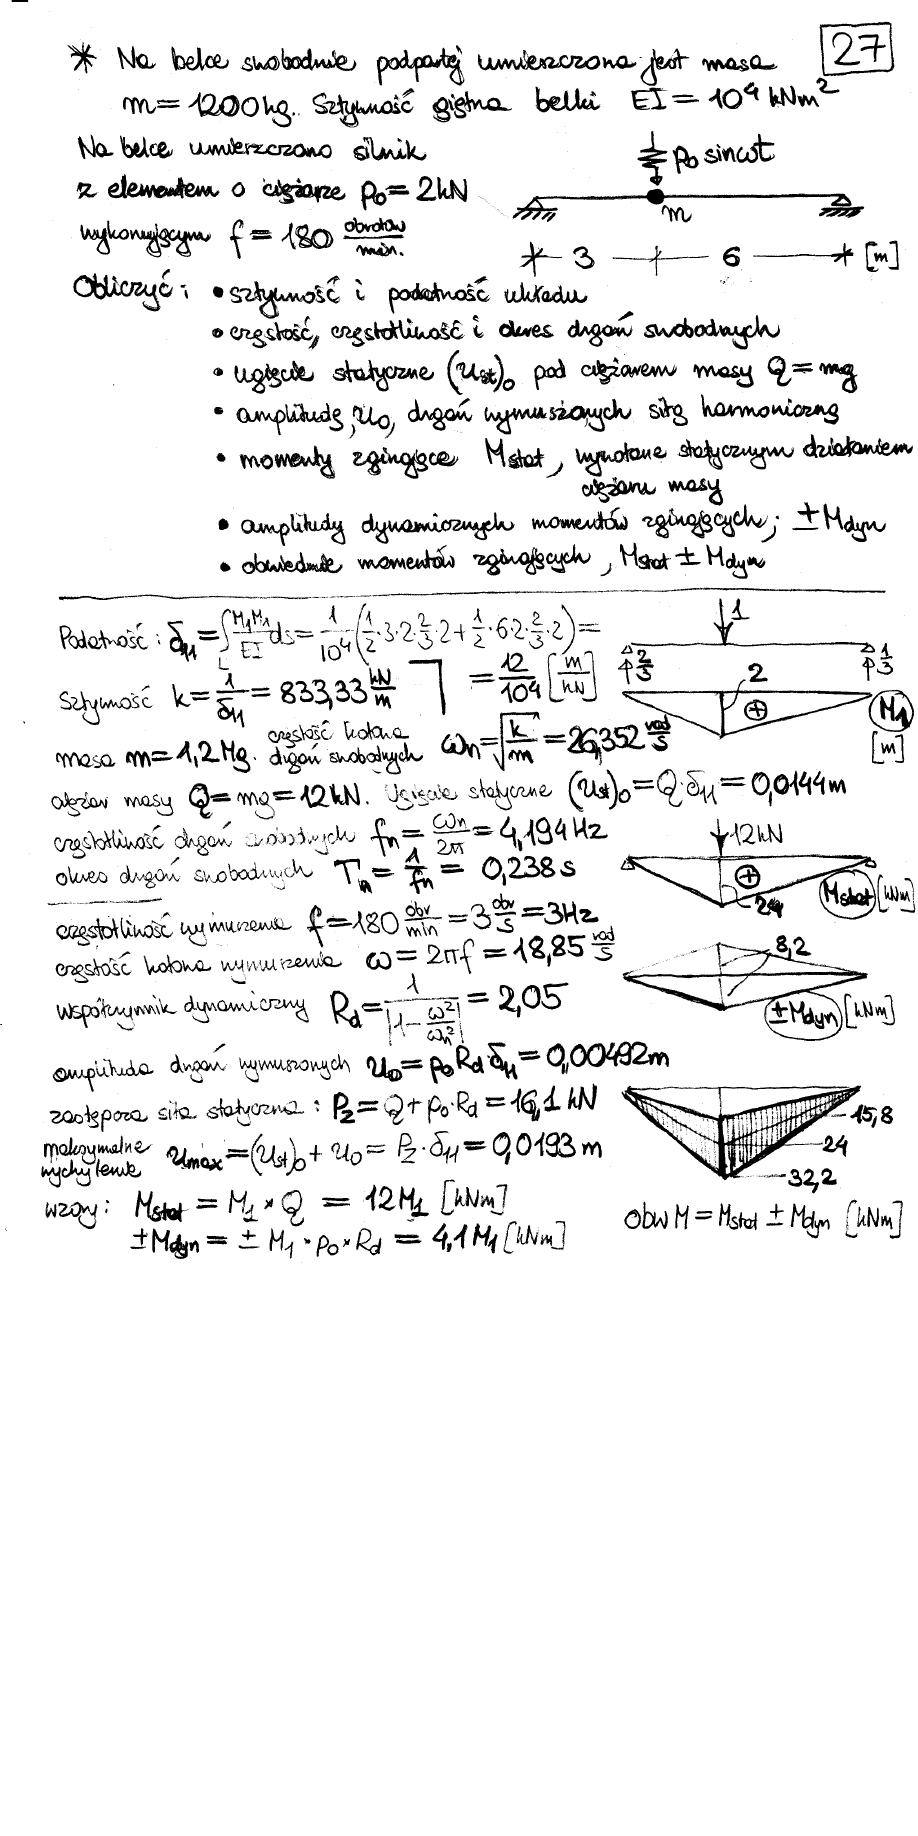 27
* Na belce swobodnie podpartej umieszczona jest masa
m = 1200 kg. Sztywność giętna belki EI = 10⁴ kNm²
Na belce umieszczono silnik
z elementem o ciężarze p₀ = 2kN
wykonującym f = 180 obrotów/min.
p₀ sinωt
m
3 6 [m]
Obliczyć: • sztywność i podatność układu
• częstość, częstotliwość i okres drgań swobodnych
• ugięcie statyczne (u_st)₀ pod ciężarem masy Q = mg
• amplitudę, u₀, drgań wymuszonych siłą harmoniczną
• momenty zginające Mstat, wywołane statycznym działaniem
ciężaru masy
• amplitudy dynamicznych momentów zginających; ± Mdyn
• obwiednie momentów zginających, Mstat ± Mdyn
Podatność: δ₁₁ = ∫_L M₁M₁/EI ds = 1/10⁴ (1/2·3·2·2/3·2 + 1/2·6·2·2/3·2) =
= 12/10⁴ [m/kN]
1
2/3 1/3
2
⊕
M₁
[m]
Sztywność k = 1/δ₁₁ = 833,33 kN/m
masa m = 1,2 Mg. częstość kołowa drgań swobodnych ωn = √(k/m) = 26,352 rad/s
ciężar masy Q = mg = 12kN. Ugięcie statyczne (u_st)₀ = Q·δ₁₁ = 0,0144 m
częstotliwość drgań swobodnych fn = ωn/2π = 4,194 Hz
okres drgań swobodnych Tn = 1/fn = 0,238 s
12kN
⊕
24
Mstat [kNm]
częstotliwość wymuszenia f = 180 obr/min = 3 obr/s = 3Hz
częstość kołowa wymuszenia ω = 2πf = 18,85 rad/s
współczynnik dynamiczny Rd = 1/|1 - ω²/ωn²| = 2,05
8,2
±Mdyn [kNm]
amplituda drgań wymuszonych u₀ = p₀ Rd δ₁₁ = 0,00492 m
zastępcza siła statyczna: Pz = Q + p₀·Rd = 16,1 kN
maksymalne wychylenie umax = (u_st)₀ + u₀ = Pz·δ₁₁ = 0,0193 m
15,8
24
32,2
wzory: Mstat = M₁ × Q = 12M₁ [kNm]
±Mdyn = ± M₁ × p₀ × Rd = 4,1 M₁ [kNm]
Obw M = Mstat ± Mdyn [kNm]